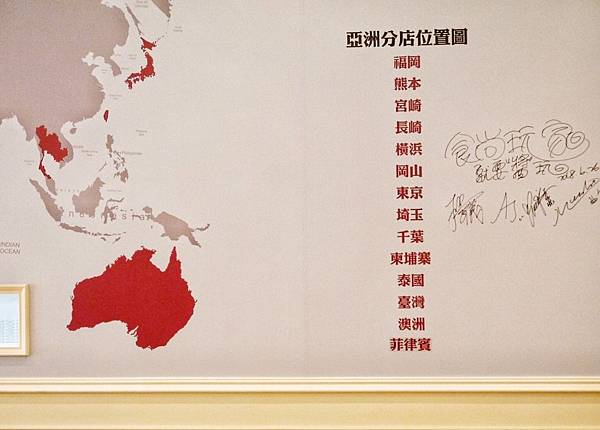 亞洲分店位置圖
福岡
熊本
宮崎
長崎
橫浜
岡山
東京
埼玉
千葉
柬埔寨
泰國
臺灣
澳洲
菲律賓
食尚玩家
就要醬玩
INDIAN
OCEAN